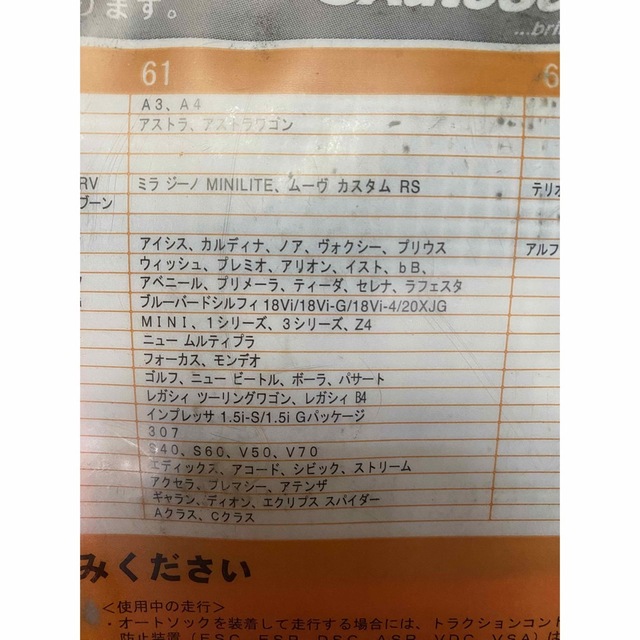 ります。
AutoSo
...bri
61
6
A3、A4
アストラ、アストラワゴン
RV
ミラ ジーノ MINILITE、ムーヴ カスタム RS
テリオ
ブーン
アイシス、カルディナ、ノア、ヴォクシー、プリウス
アルフ
ウィッシュ、プレミオ、アリオン、イスト、bB、
アベニール、プリメーラ、ティーダ、セレナ、ラフェスタ
ブルーバードシルフィ18Vi/18Vi-G/18Vi-4/20XJG
MINI、1シリーズ、3シリーズ、Z4
ニュー ムルティプラ
フォーカス、モンデオ
ゴルフ、ニュー ビートル、ボーラ、パサート
レガシィ ツーリングワゴン、レガシィ B4
インプレッサ 1.5i-S/1.5i Gパッケージ
307
S40、S60、V50、V70
エディックス、アコード、シビック、ストリーム
アクセラ、プレマシー、アテンザ
ギャラン、ディオン、エクリプス スパイダー
Aクラス、Cクラス
みください
＜使用中の走行＞
・オートソックを装着して走行する場合には、トラクションコント
防止装置（ESC、ESP、DSC、ASR、VDC、VSA）は